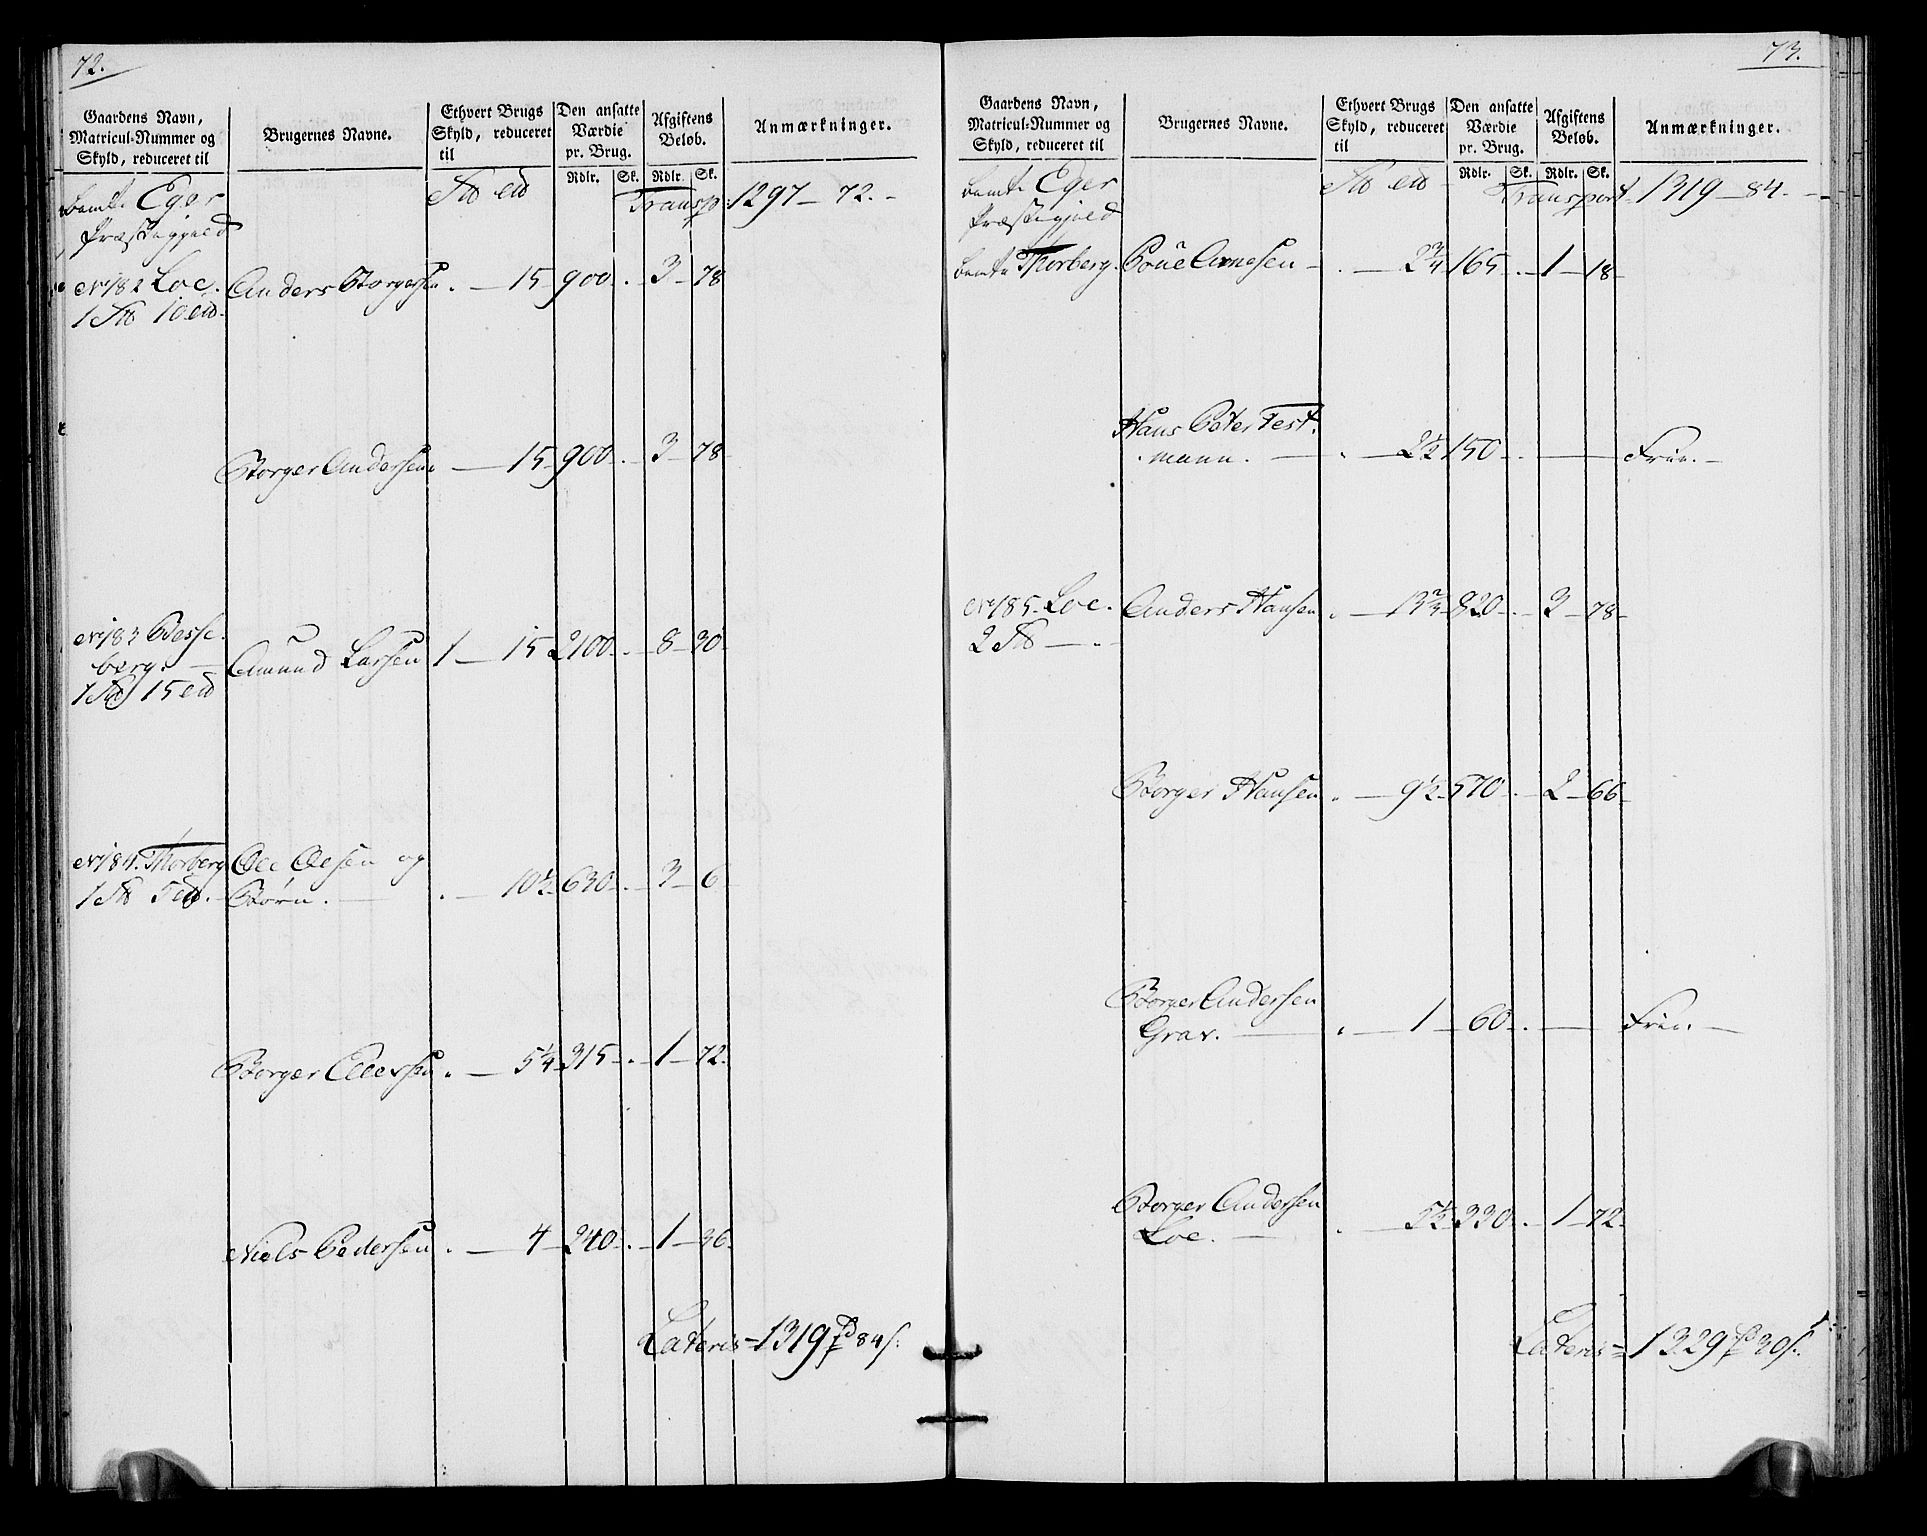 72.
Gaardens Navn,
Matricul-Nummer og
Skyld, reduceret til
Brugernes Navne.
Ethvert Brugs
Skyld, reduceret
til
Den ansatte
Værdie
pr. Brug.
Rdlr. Sk.
Afgiftens
Beløb.
Rdlr. Sk.
Anmærkninger.
Bemte Eger
Præstegjeld
Transp: 1297 - 72. -
No 182 Loe. Anders Borgersen. - 15 900 . 3 - 78
1 10
Borger Andersen. - 15 900 . 3 - 78
No 183 Besse-
berg. Amund Larsen 1 - 15 2100 . 8 - 30
1 15
No 184. Thorberg Ole Olsen og
1 5 Børn. . - 10½ 630 . 3 - 6
Borger Ellersen . - 5¼ 315 . 1 - 72.
Niels Pedersen . - 4 240 . 1 - 36
Lateris = 1319 84 s.
73.
Gaardens Navn,
Matricul-Nummer og
Skyld, reduceret til
Brugernes Navne.
Ethvert Brugs
Skyld, reduceret
til
Den ansatte
Værdie
pr. Brug.
Rdlr. Sk.
Afgiftens
Beløb.
Rdlr. Sk.
Anmærkninger.
Bemte Eger
Præstegjeld
Transport 1319 - 84 - -
Bemte Thorberg. Poüe Arnesen . - 2¾ 165 . 1 - 18
Hans Peter Test-
mann. . - 2½ 150 . - Frie. -
No 185. Loe. Anders Hansen . - 13⅔ 820 . 3 - 78
2
Borger Hansen . - 9½ 570 . 2 - 66
Borger Andersen
Grav. . - 1 - 60 . - Frie. -
Borger Andersen
Loe. . - 5½ 330 . 1 - 72
Lateris = 1329 30 s.